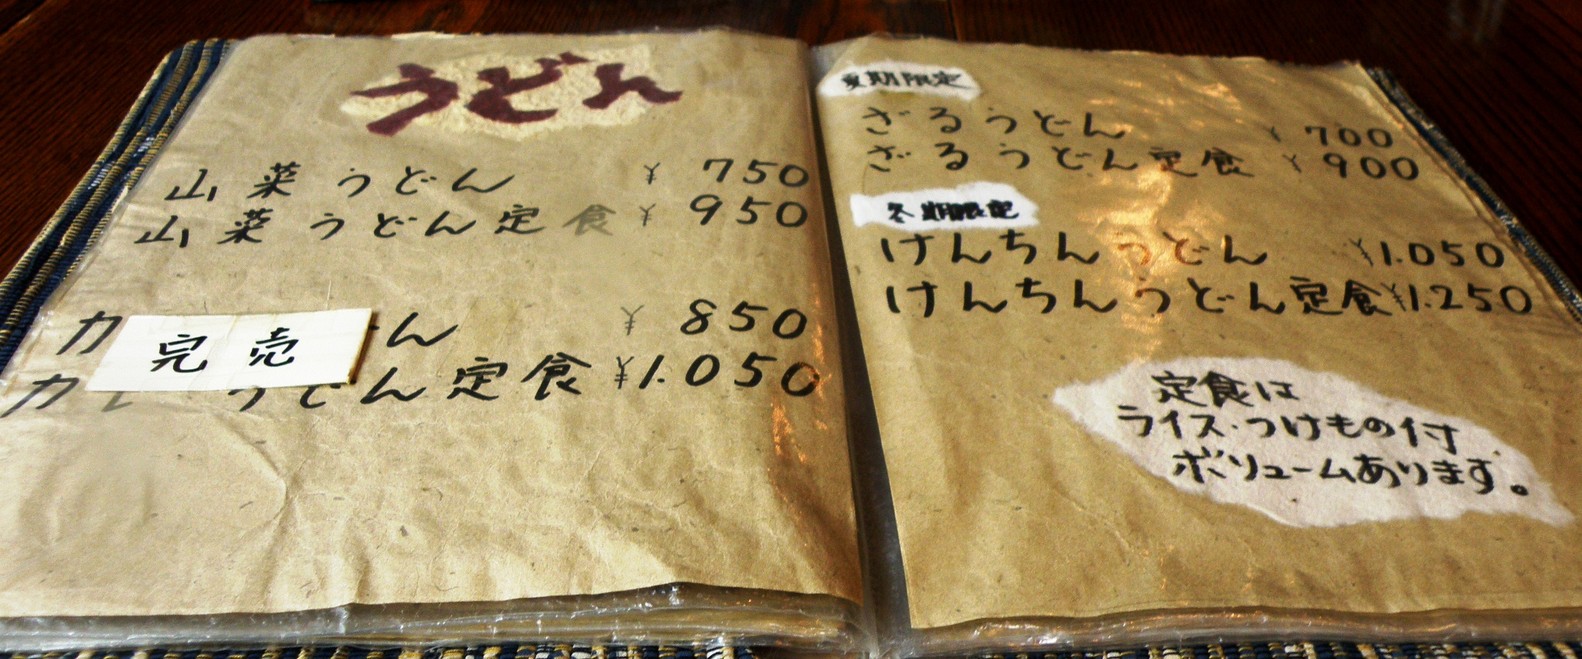 うどん
山菜うどん ¥750
山菜うどん定食 ¥950
カ 完売 ん ¥850
カレ うどん定食 ¥1.050
夏期限定
ざるうどん ¥700
ざるうどん定食 ¥900
冬期限定
けんちんうどん ¥1.050
けんちんうどん定食 ¥1.250
定食は
ライス・つけもの付
ボリュームあります。